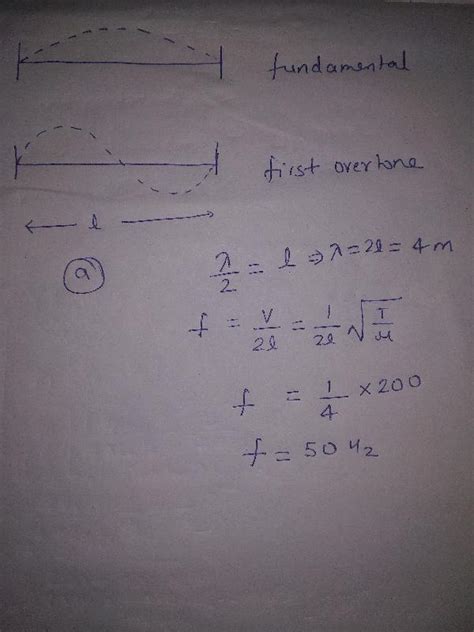 fundamental
first overtone
l
(a)
λ/2 = l ⇒ λ = 2l = 4 m
f = V/2l = 1/2l √T/μ
f = 1/4 × 200
f = 50 Hz